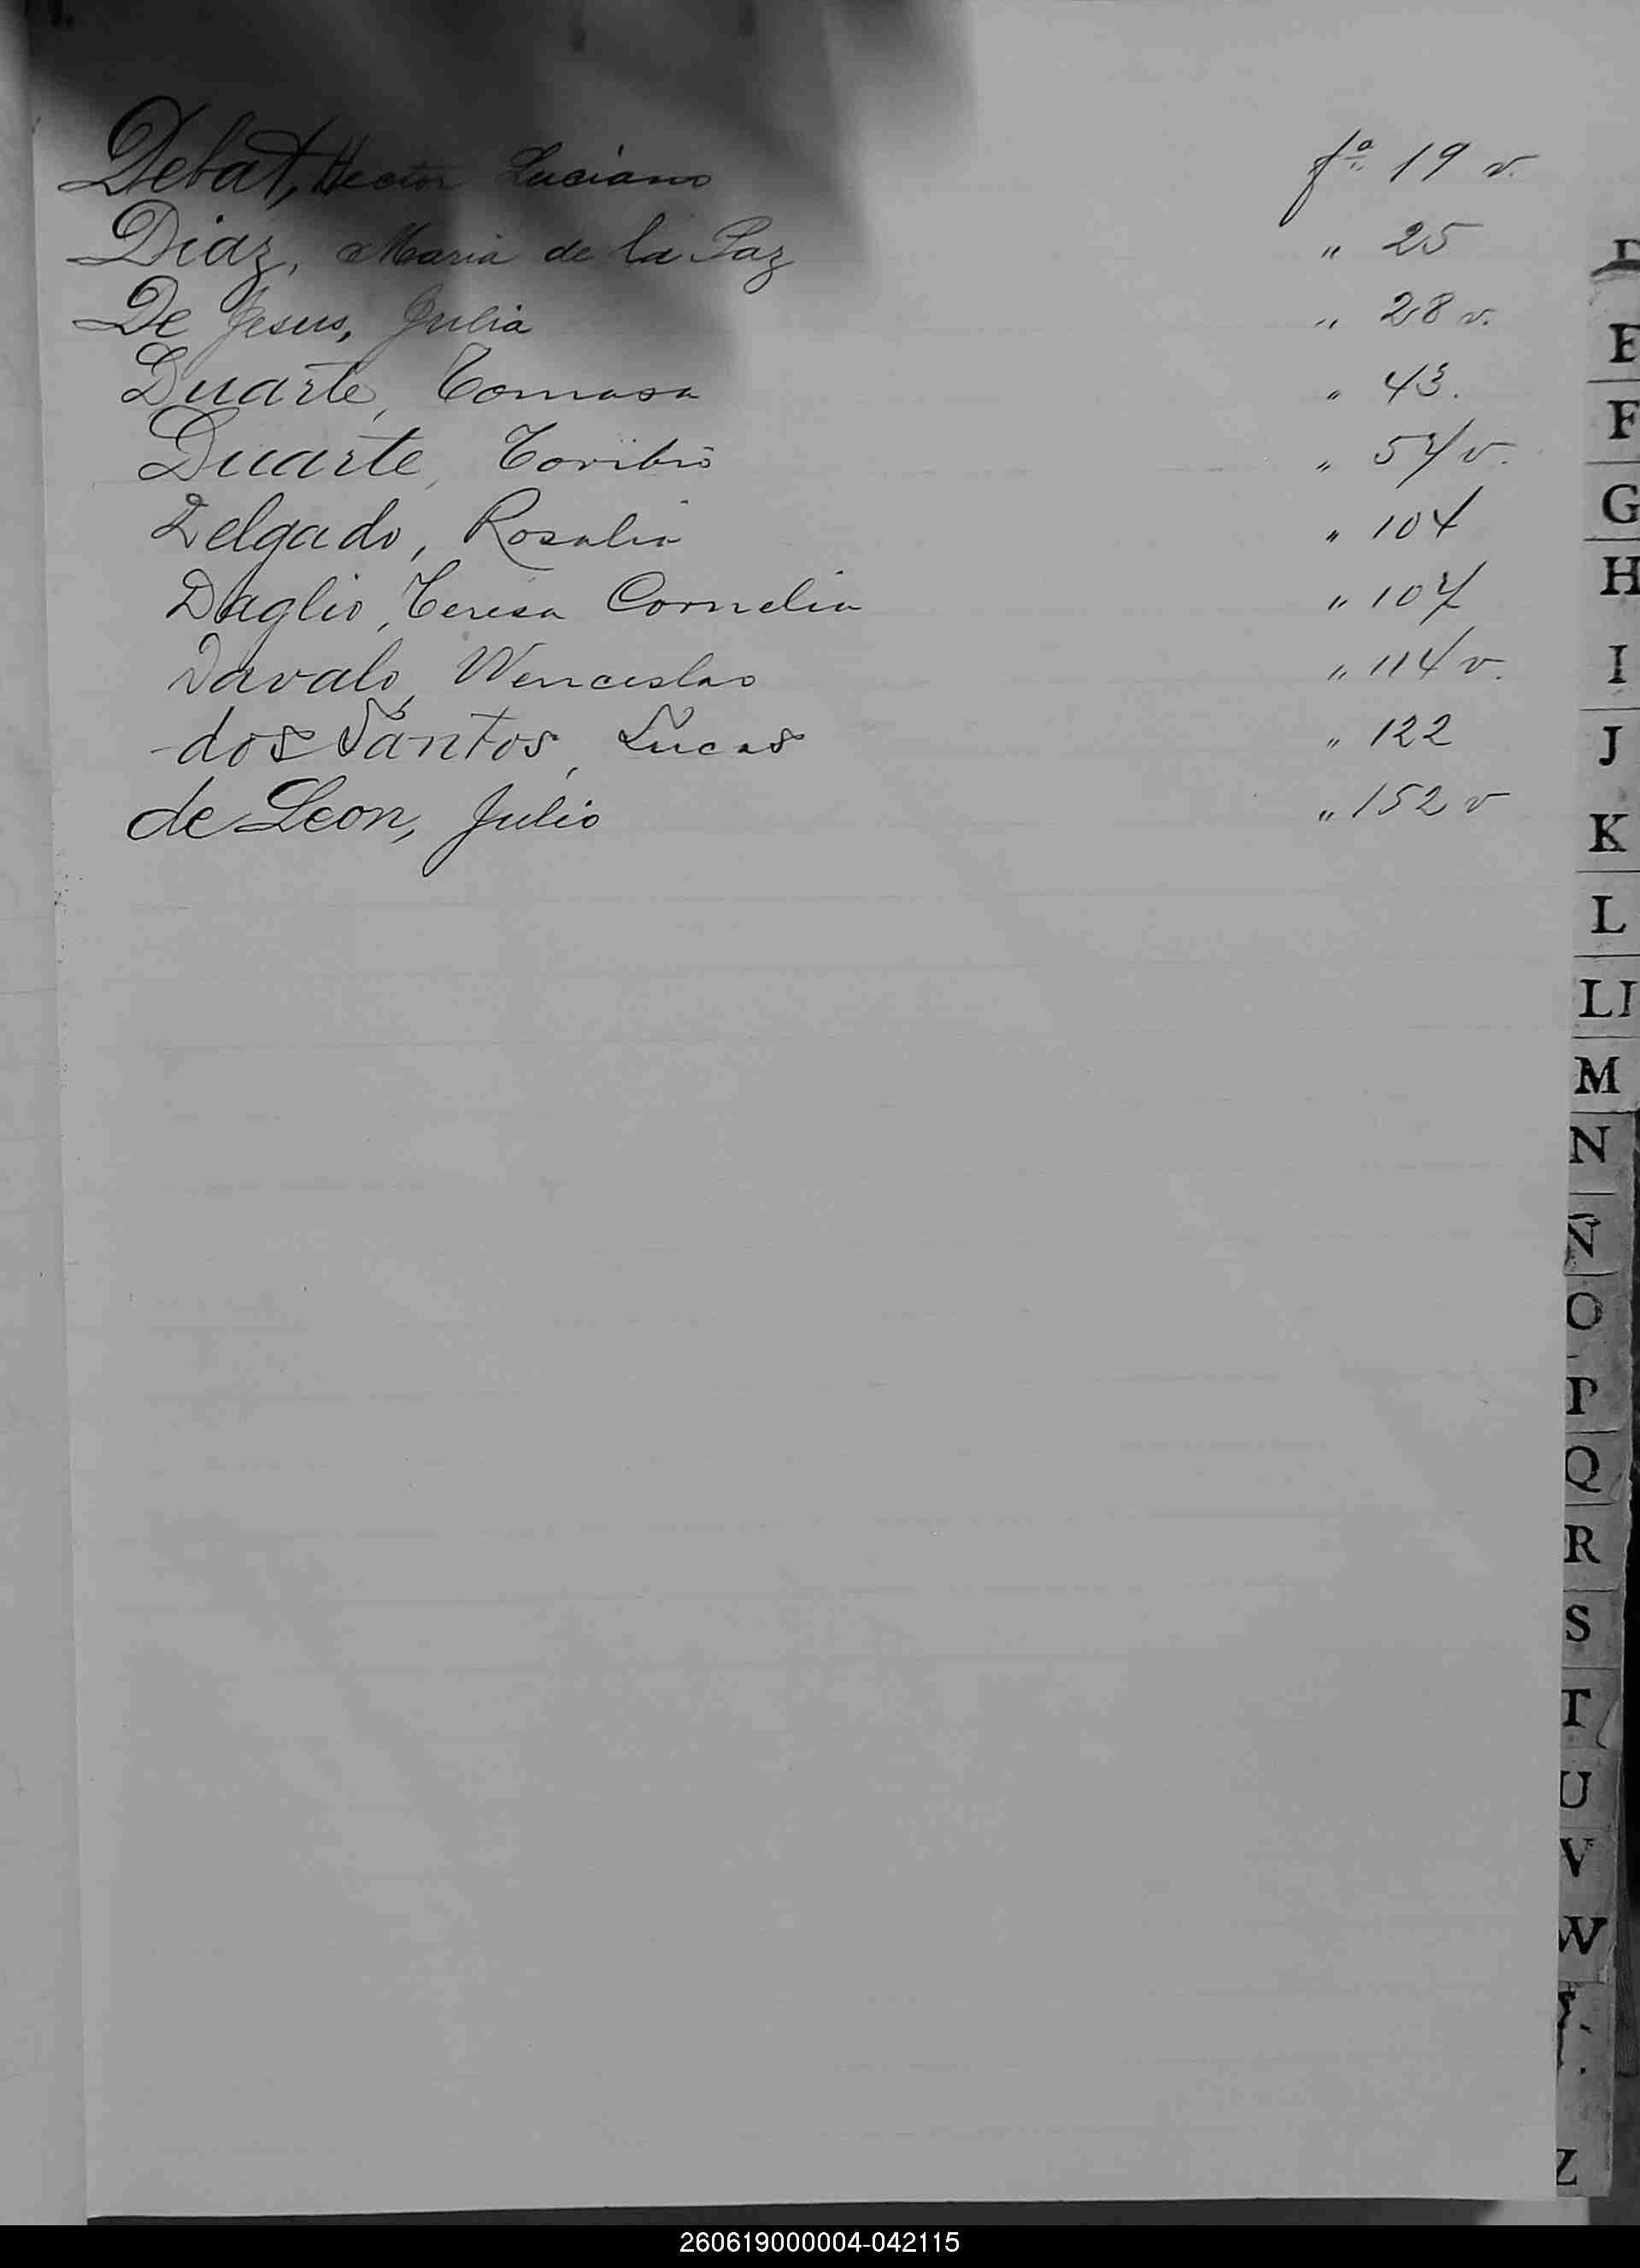 Debat, Hector Luciano fº 19 v.
Diaz, Maria de la Paz " 25
De Jesus, Julia " 28 v.
Duarte, Tomasa " 43.
Duarte, Toribio " 54 v.
Delgado, Rosalia " 104
Daglio, Teresa Cornelia " 107
Davalo, Wenceslao " 114 v.
dos Santos, Lucas " 122
de Leon, Julio " 152 v
D
E
F
G
H
I
J
K
L
Ll
M
N
Ñ
O
P
Q
R
S
T
U
V
W
Z
260619000004-042115